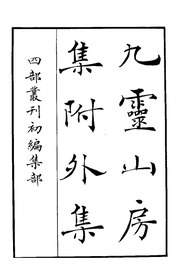 九靈山房
集附外集
四部叢刊初編集部